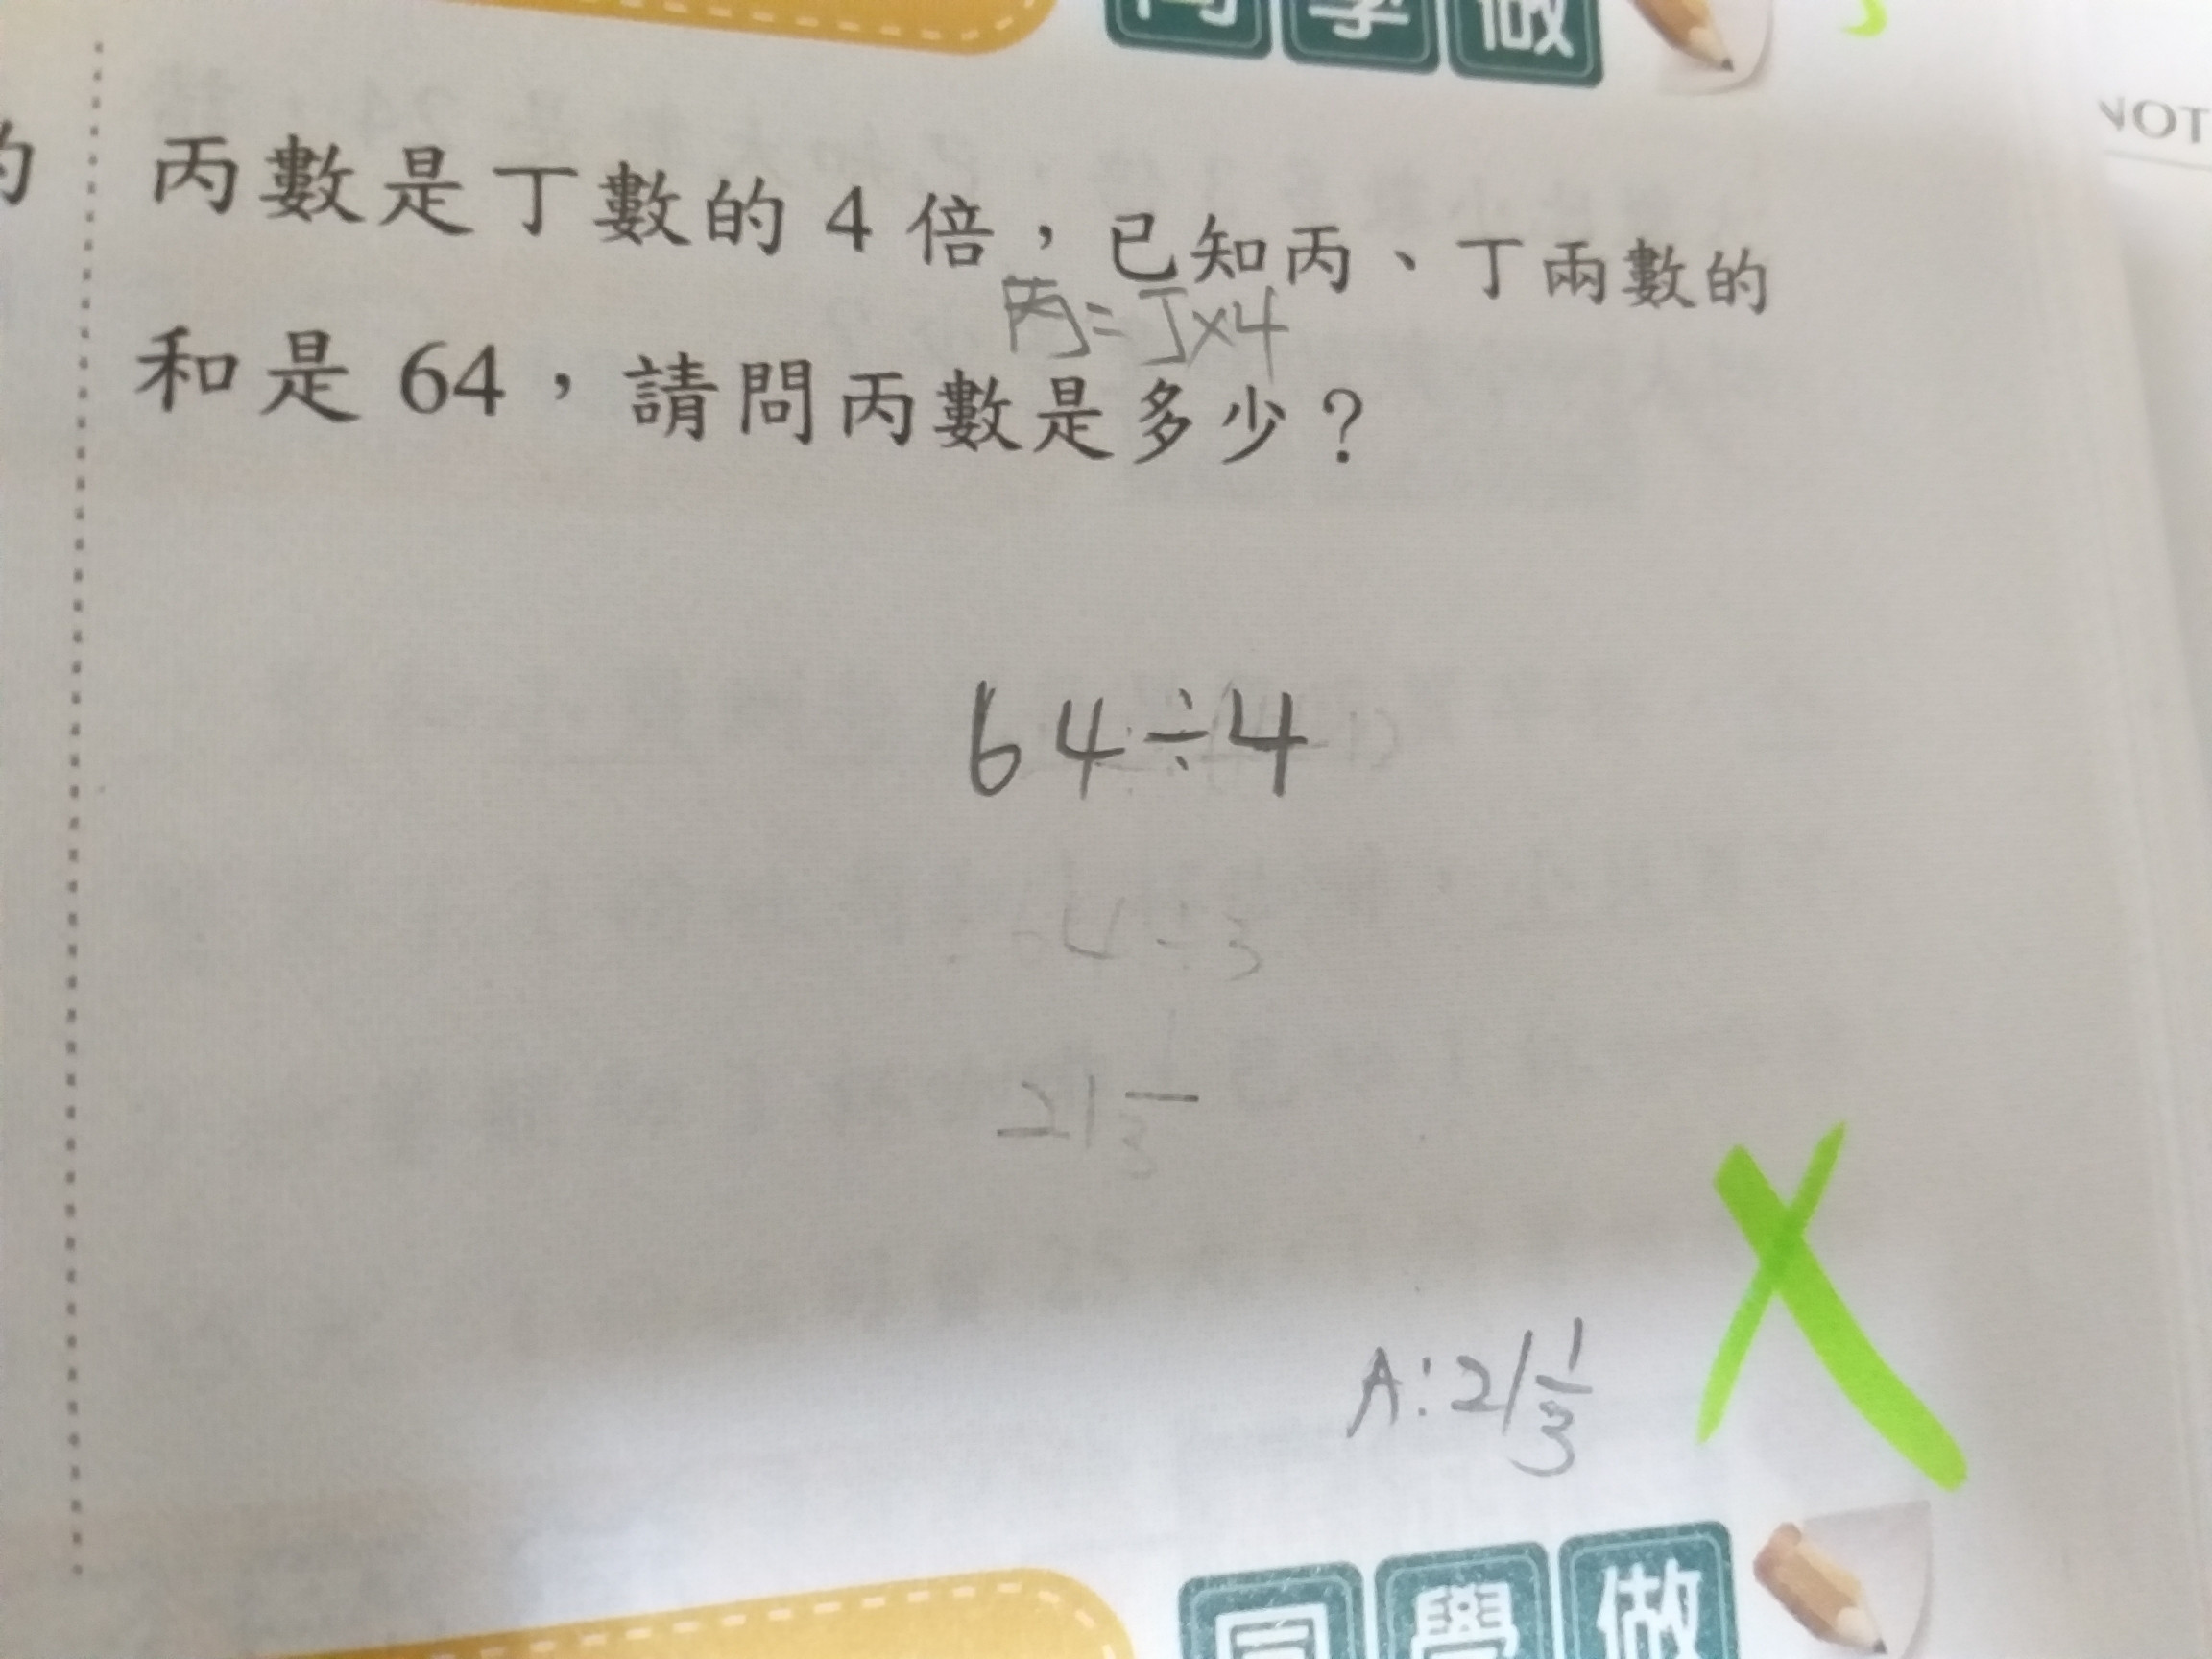 同學做
NOT
的
丙數是丁數的 4 倍，已知丙、丁兩數的
丙=丁×4
和是 64，請問丙數是多少？
64÷4
64÷3
21 1/3
A:21 1/3
同學做